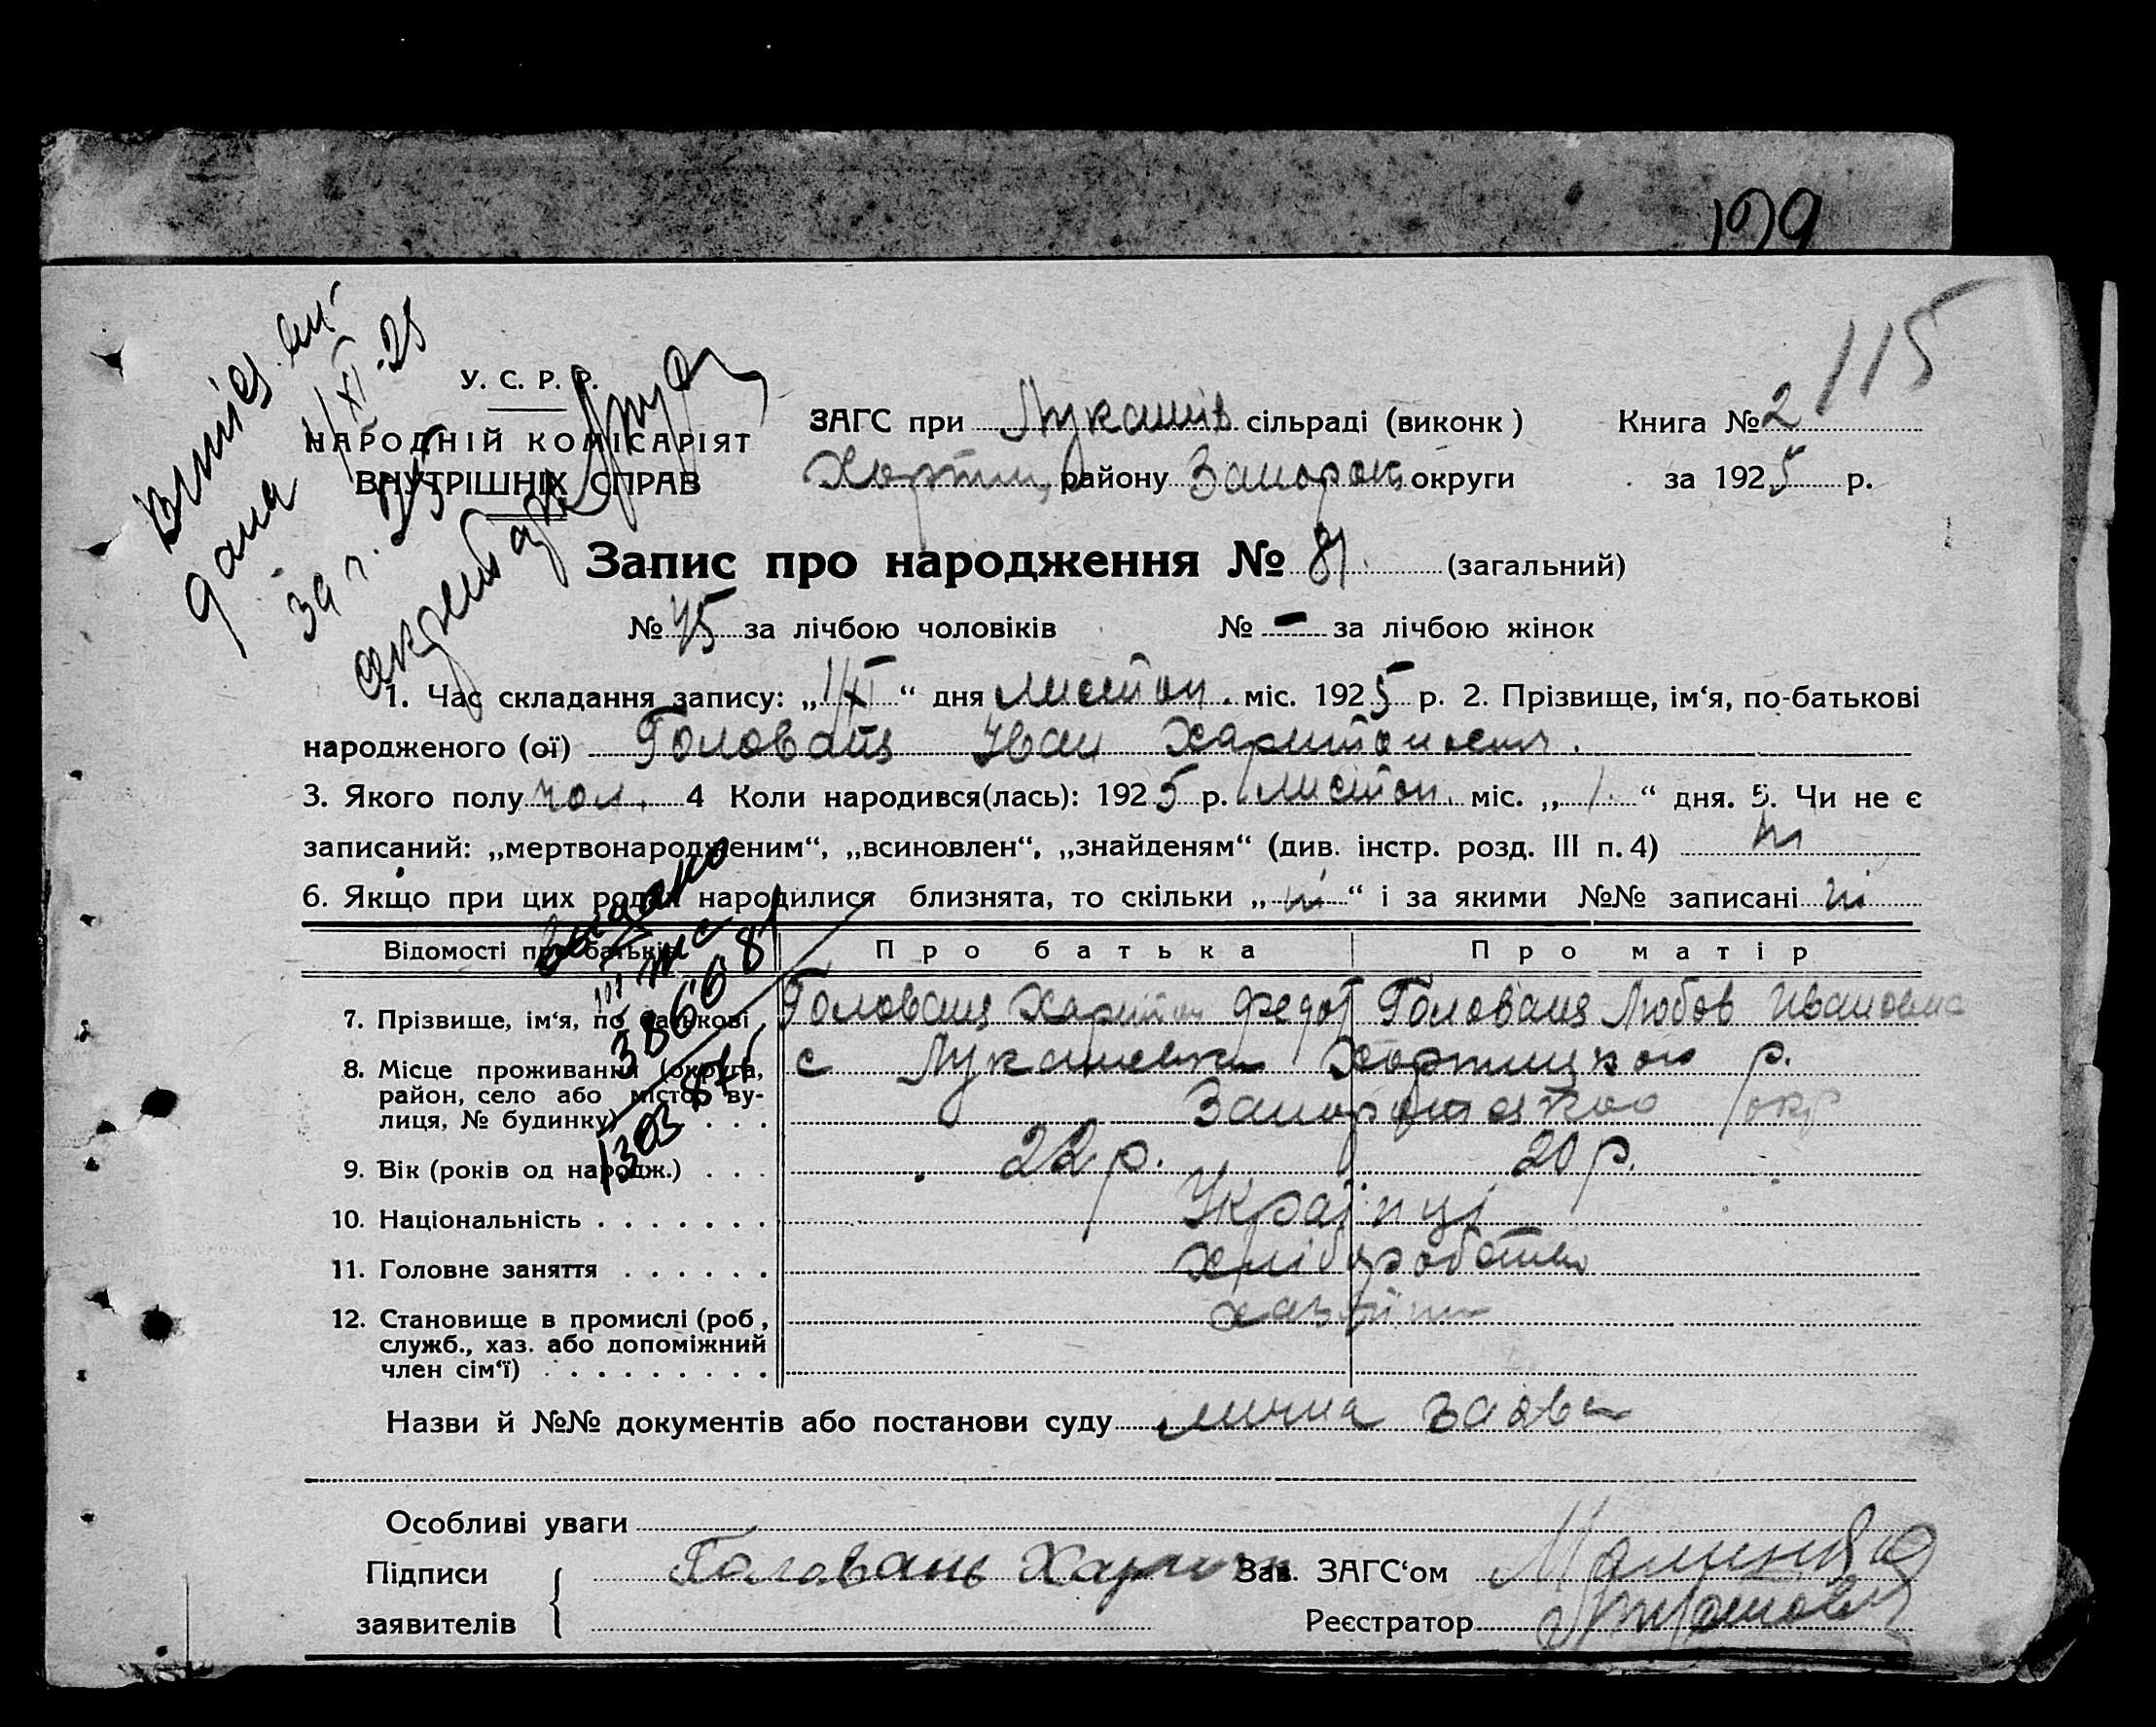 199
115
У. С. Р. Р.
НАРОДНІЙ КОМІСАРІЯТ
ВНУТРІШНІХ СПРАВ
дана 1/XI-25
за г.
ЗАГС при Лукашів сільраді (виконк) Книга № 2
Хортиц району Запорож округи за 1925 р.
Запис про народження № 81. (загальний)
№ 45 за лічбою чоловіків № - за лічбою жінок
1. Час складання запису: „1/XI“ дня листоп. міс. 1925 р. 2. Прізвище, ім‘я, по-батькові
народженого (ої) Головань Іван Харитонович.
3. Якого полу чол. 4 Коли народився(лась): 1925 р. листоп. міс. „1.“ дня. 5. Чи не є
записаний: „мертвонародженим“, „всиновлен“, „знайденям“ (див. інстр. розд. III п. 4) ні
6. Якщо при цих родах народилися близнята, то скільки „ні“ і за якими №№ записані ні
Відомості про батьків Про батька Про матір
7. Прізвище, ім‘я, по батькові Головань Харитон Федот Головань Любов Ивановна
8. Місце проживання (округа, с Лукашевки Хортицкого р.
район, село або місто, ву-
лиця, № будинку) . . . Запорожского окр
9. Вік (років од народж.) . . . 22 р. 20 р.
10. Національність . . . . . . . Українці
11. Головне заняття . . . . . . Хліборобство
12. Становище в промислі (роб,
служб., хаз. або допоміжний
член сім‘ї) . . . . . . . . .
видано
386681
Назви й №№ документів або постанови суду лична заява
Особливі уваги
Підписи Головань Харитон Зав. ЗАГС‘ом
заявителів Реєстратор